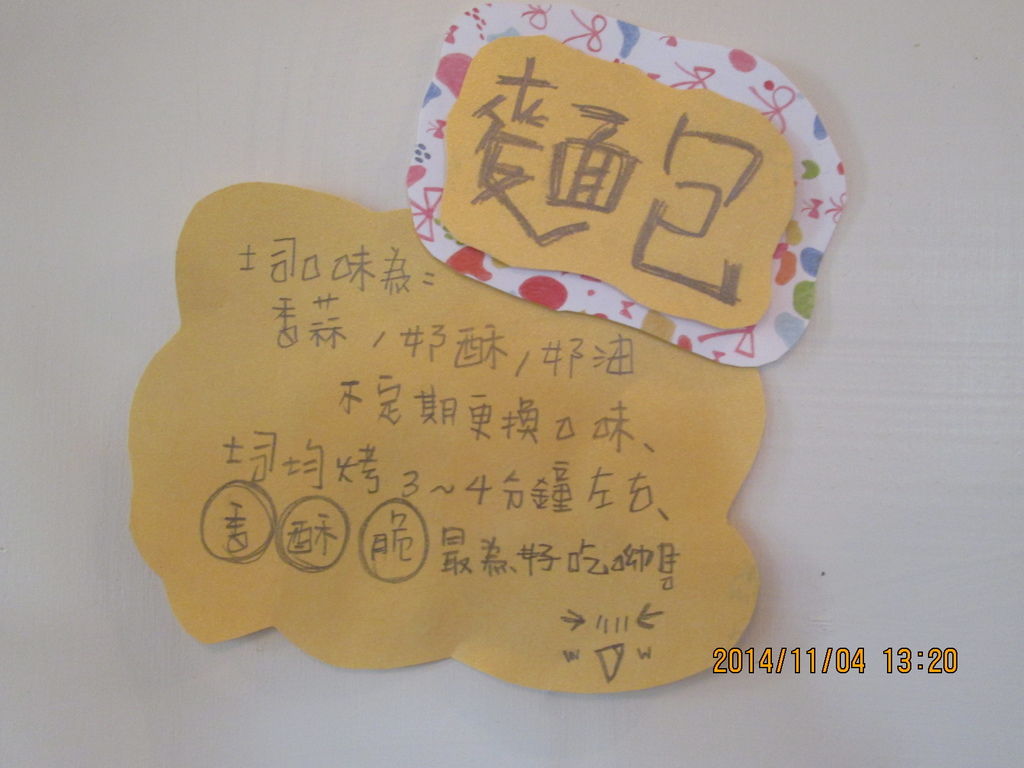 麵包
土司口味為:
香蒜,奶酥,奶油
不定期更換口味、
土司均烤3~4分鐘左右、
香酥脆最為好吃呦!!
2014/11/04 13:20